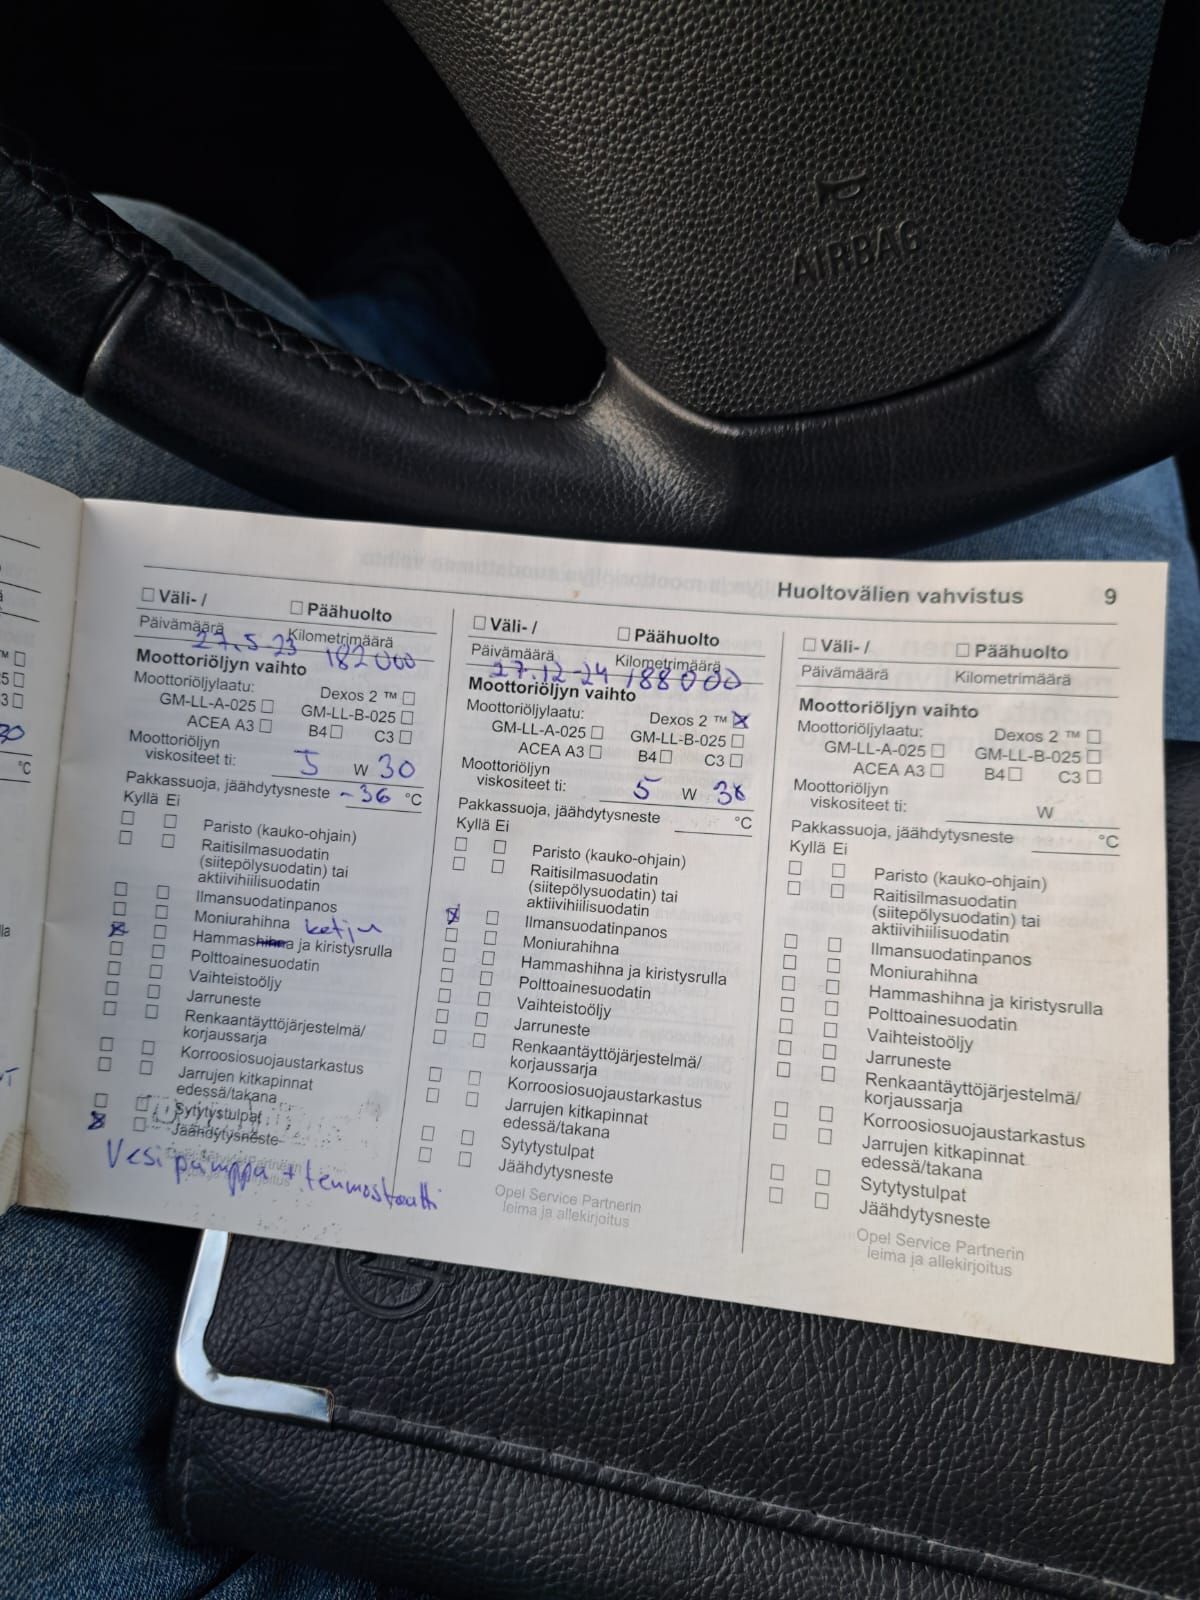 AIRBAG
Huoltovälien vahvistus 9
☐ Väli- / ☐ Päähuolto
Päivämäärä Kilometrimäärä
27.5-23 182000
Moottoriöljyn vaihto
Moottoriöljylaatu: Dexos 2 ™ ☐
GM-LL-A-025 ☐ GM-LL-B-025 ☐
ACEA A3 ☐ B4 ☐ C3 ☐
Moottoriöljyn
viskositeet ti: 5 W 30
Pakkassuoja, jäähdytysneste -36 °C
Kyllä Ei
☐ ☐ Paristo (kauko-ohjain)
☐ ☐ Raitisilmasuodatin
(siitepölysuodatin) tai
aktiivihiilisuodatin
☐ ☐ Ilmansuodatinpanos
☐ ☐ Moniurahihna ketju
☒ ☐ Hammashihna ja kiristysrulla
☐ ☐ Polttoainesuodatin
☐ ☐ Vaihteistoöljy
☐ ☐ Jarruneste
☐ ☐ Renkaantäyttöjärjestelmä/
korjaussarja
☐ ☐ Korroosiosuojaustarkastus
☐ ☐ Jarrujen kitkapinnat
edessä/takana
☐ ☐ Sytytystulpat
☒ ☐ Jäähdytysneste
Vesi pumppa + termostaatti
☐ Väli- / ☐ Päähuolto
Päivämäärä Kilometrimäärä
27.12-24 188000
Moottoriöljyn vaihto
Moottoriöljylaatu: Dexos 2 ™ ☒
GM-LL-A-025 ☐ GM-LL-B-025 ☐
ACEA A3 ☐ B4 ☐ C3 ☐
Moottoriöljyn
viskositeet ti: 5 W 30
Pakkassuoja, jäähdytysneste °C
Kyllä Ei
☐ ☐ Paristo (kauko-ohjain)
☐ ☐ Raitisilmasuodatin
(siitepölysuodatin) tai
aktiivihiilisuodatin
☒ ☐ Ilmansuodatinpanos
☐ ☐ Moniurahihna
☐ ☐ Hammashihna ja kiristysrulla
☐ ☐ Polttoainesuodatin
☐ ☐ Vaihteistoöljy
☐ ☐ Jarruneste
☐ ☐ Renkaantäyttöjärjestelmä/
korjaussarja
☐ ☐ Korroosiosuojaustarkastus
☐ ☐ Jarrujen kitkapinnat
edessä/takana
☐ ☐ Sytytystulpat
☐ ☐ Jäähdytysneste
Opel Service Partnerin
leima ja allekirjoitus
☐ Väli- / ☐ Päähuolto
Päivämäärä Kilometrimäärä
Moottoriöljyn vaihto
Moottoriöljylaatu: Dexos 2 ™ ☐
GM-LL-A-025 ☐ GM-LL-B-025 ☐
ACEA A3 ☐ B4 ☐ C3 ☐
Moottoriöljyn
viskositeet ti: W
Pakkassuoja, jäähdytysneste °C
Kyllä Ei
☐ ☐ Paristo (kauko-ohjain)
☐ ☐ Raitisilmasuodatin
(siitepölysuodatin) tai
aktiivihiilisuodatin
☐ ☐ Ilmansuodatinpanos
☐ ☐ Moniurahihna
☐ ☐ Hammashihna ja kiristysrulla
☐ ☐ Polttoainesuodatin
☐ ☐ Vaihteistoöljy
☐ ☐ Jarruneste
☐ ☐ Renkaantäyttöjärjestelmä/
korjaussarja
☐ ☐ Korroosiosuojaustarkastus
☐ ☐ Jarrujen kitkapinnat
edessä/takana
☐ ☐ Sytytystulpat
☐ ☐ Jäähdytysneste
Opel Service Partnerin
leima ja allekirjoitus